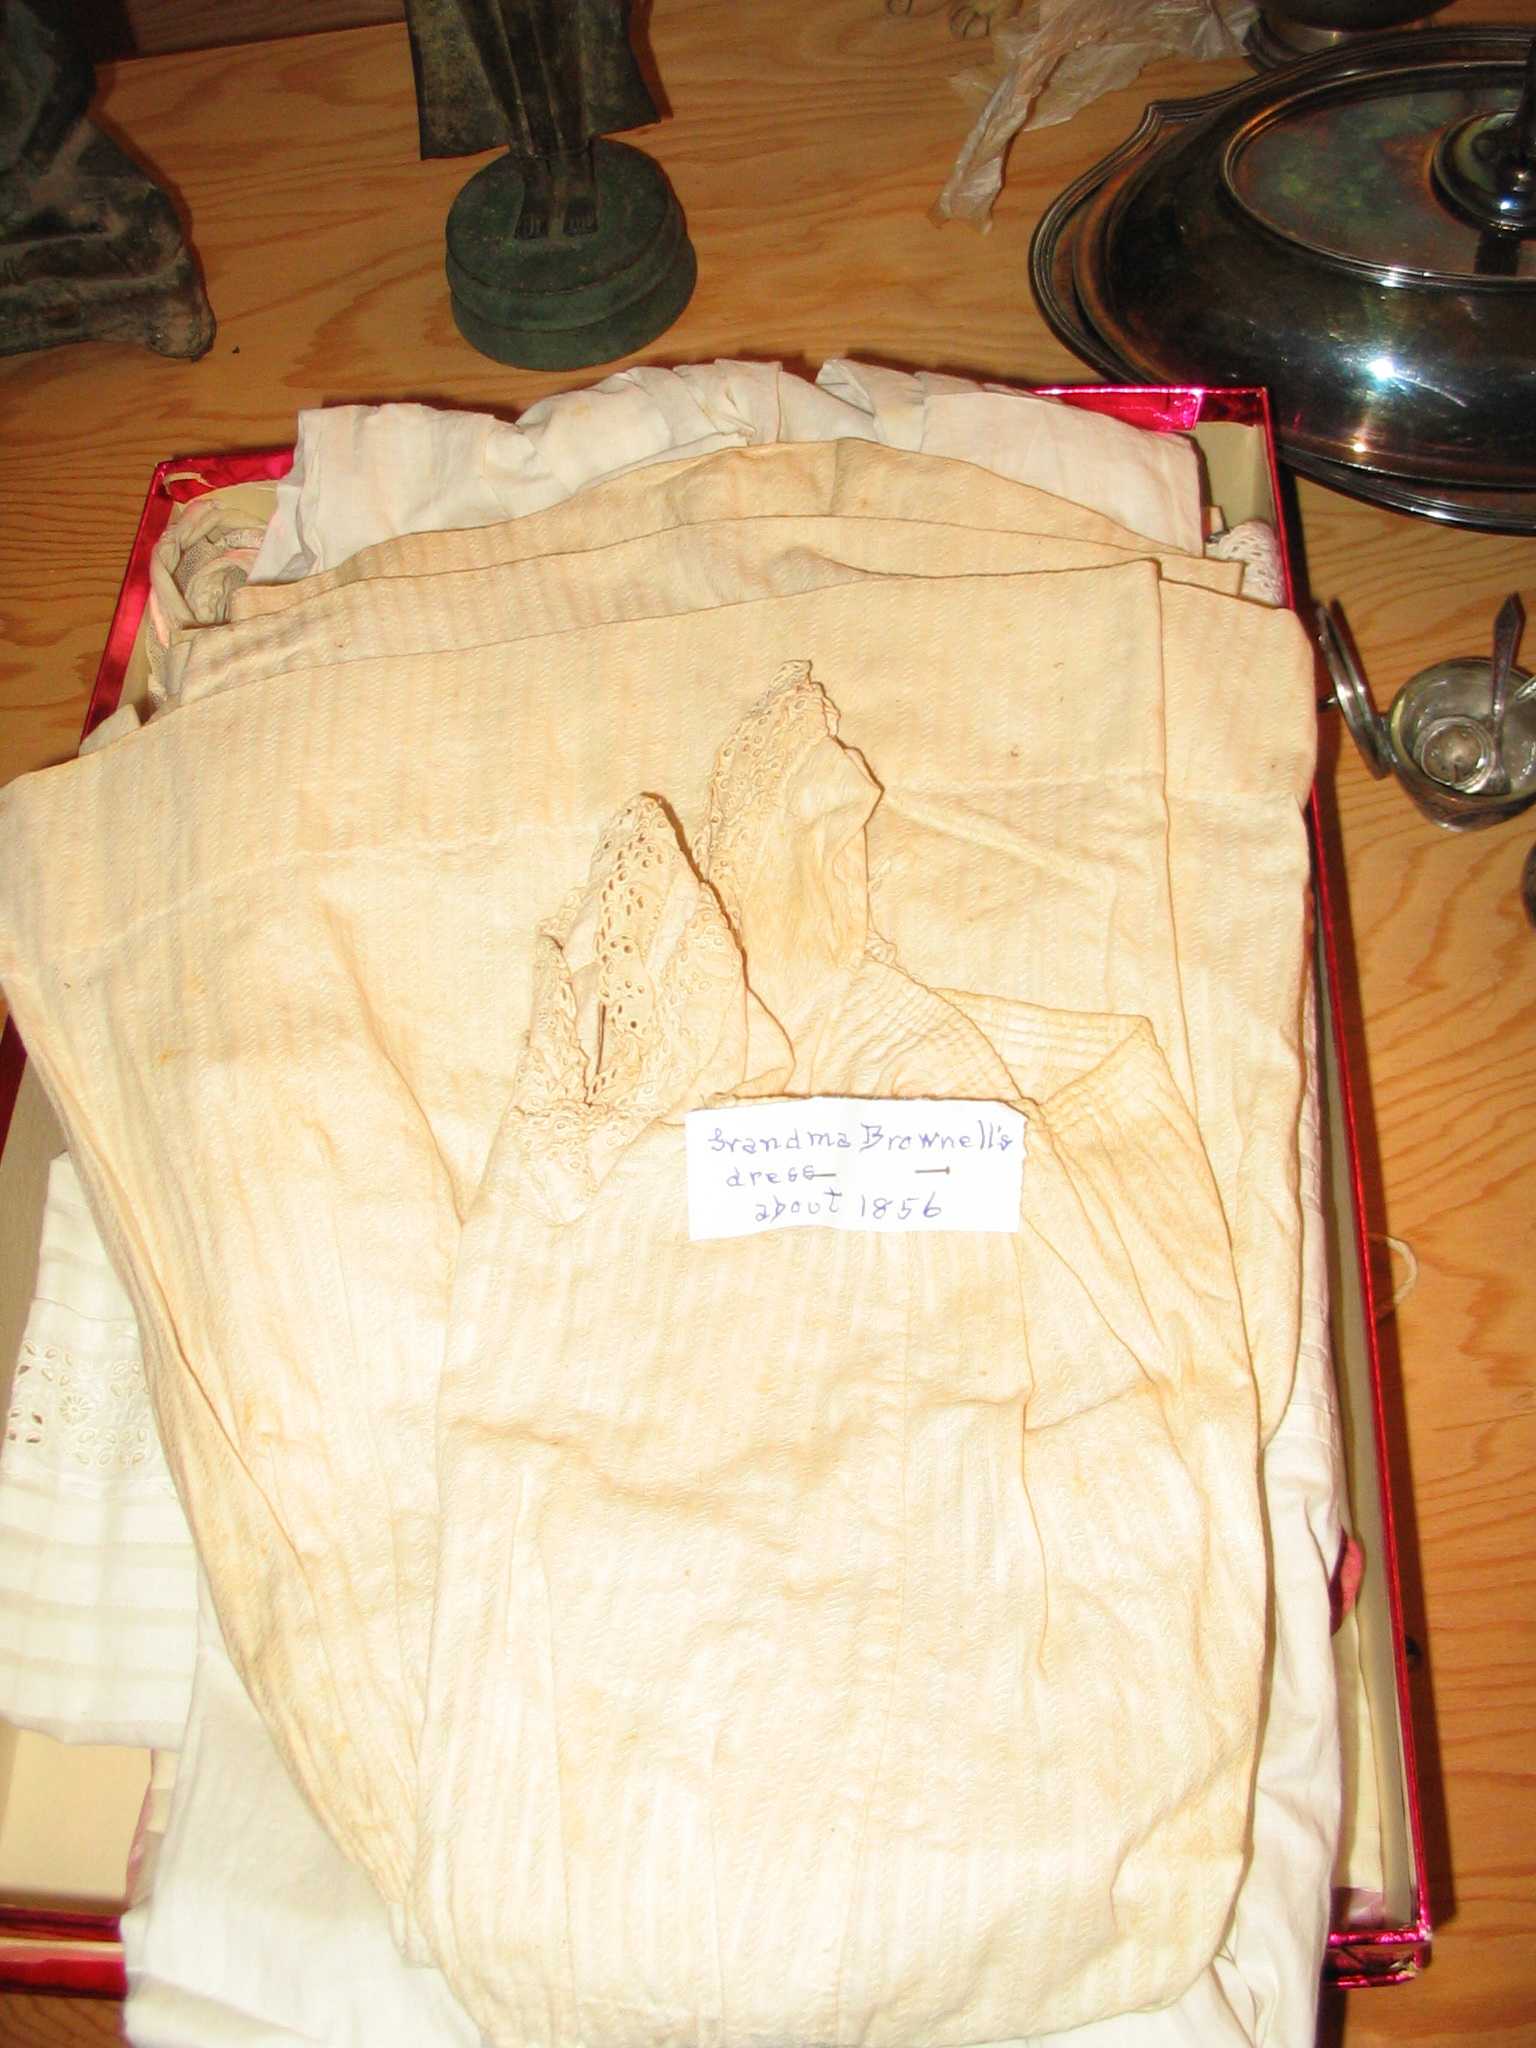 Grandma Brownell's
dress
about 1856